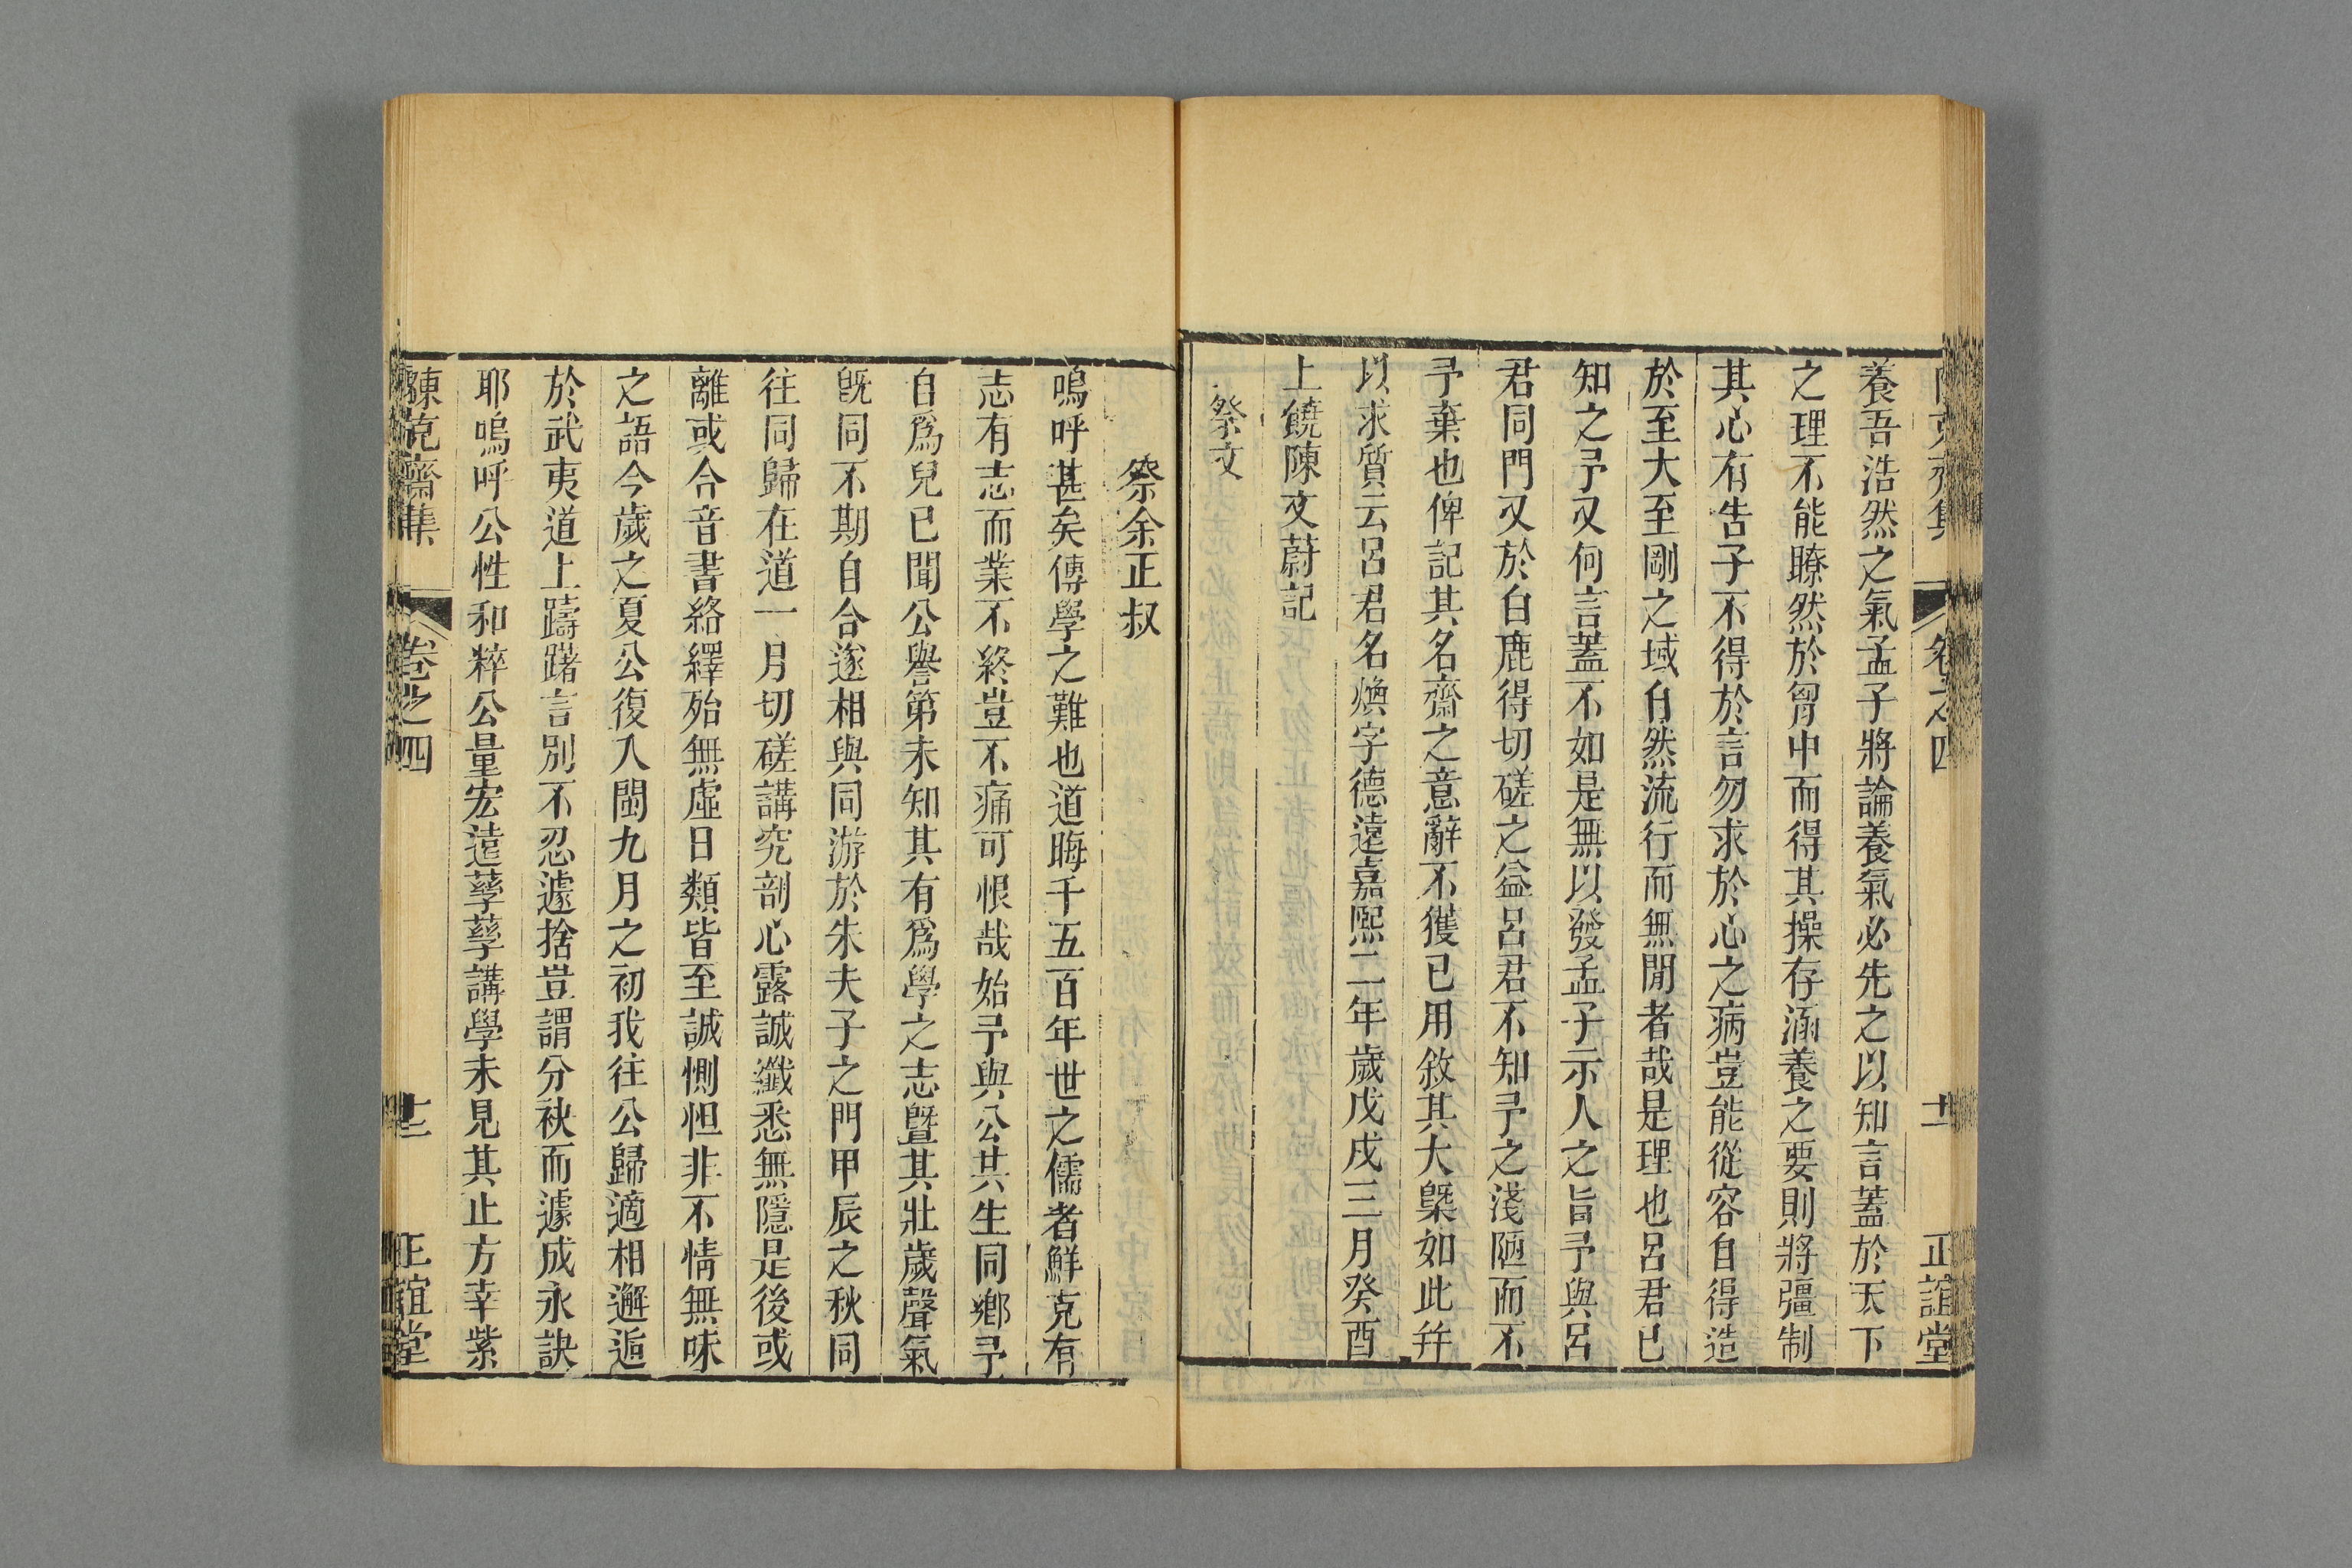 養吾浩然之氣孟子將論養氣必先之以知言蓋於天下
之理不能瞭然於胷中而得其操存涵養之要則將彊制
其心有告子不得於言勿求於心之病豈能從容自得造
於至大至剛之域自然流行而無閒者哉是理也呂君已
知之予又何言蓋不如是無以發孟子示人之旨予與呂
君同門又於白鹿得切磋之益呂君不知予之淺陋而不
予棄也俾記其名齋之意辭不獲已用敘其大槩如此并
以求質云呂君名煥字德遠嘉熙二年歲戊戌三月癸酉
上饒陳文蔚記
祭文
祭余正叔
嗚呼甚矣傳學之難也道晦千五百年世之儒者鮮克有
志有志而業不終豈不痛可恨哉始予與公共生同鄉予
自爲兒已聞公譽第未知其有爲學之志暨其壯歲聲氣
既同不期自合遂相與同游於朱夫子之門甲辰之秋同
往同歸在道一月切磋講究剖心露誠纖悉無隱是後或
離或合音書絡繹殆無虛日類皆至誠惻怛非不情無味
之語今歲之夏公復入閩九月之初我往公歸適相邂逅
於武夷道上躊躇言別不忍遽捨豈謂分袂而遽成永訣
耶嗚呼公性和粹公量宏遠孳孳講學未見其止方幸紫
陳克齋集 卷之四 十二 正誼堂